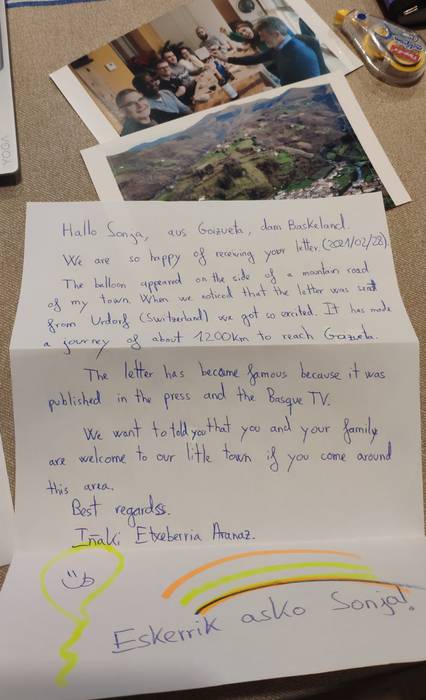 YOGA
Hallo Sonja, aus Goizueta, dam Baskeland.
We are so happy of receiving your letter. (2021/02/28).
The balloon appeared on the side of a mountain road
of my town. When we noticed that the letter was sent
from Urdorf (Switzerland) we got so excited. It has made
a journey of about 1200km to reach Goizueta.
The letter has became famous because it was
published in the press and the Basque TV.
We want to told you that you and your family
are welcome to our little town if you come around
this area.
Best regardss.
Iñaki Etxeberria Aranaz.
Eskerrik asko Sonja!